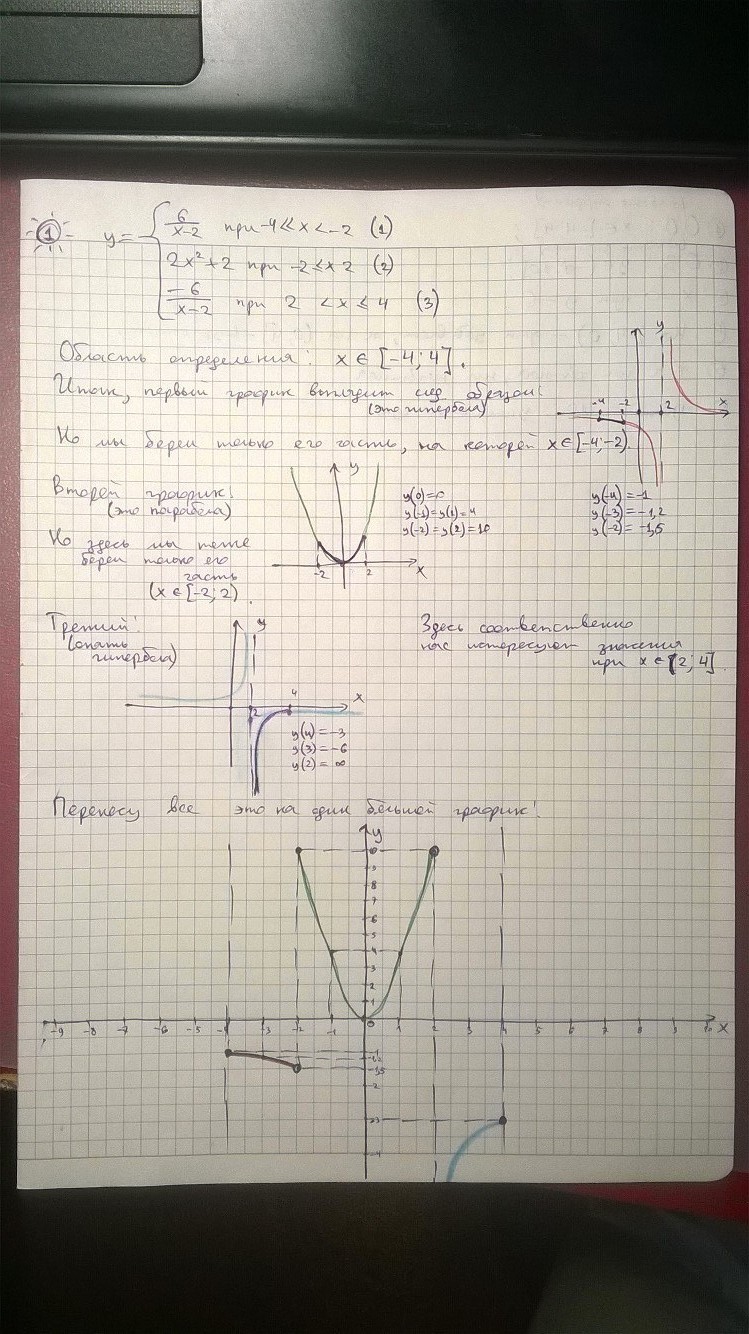 1
y= { 6/x-2 при -4≤x<-2 (1)
2x²+2 при -2≤x 2 (2)
-6/x-2 при 2 <x≤4 (3)
Область определения: x ∈ [-4; 4].
Итак, первый график выглядит след образом:
(это гипербола)
Но мы берем только его часть, на которой x∈[-4;-2).
y
x
-4 -2 2
y(-4) = -1
y(-3) = -1,2
y(-2) = -1,5
Второй график:
(это парабола)
Но здесь мы тоже
берем только его
часть
(x ∈ [-2; 2)
y
x
-2 2
y(0)=0
y(-1)=y(1)=4
y(-2)=y(2)=10
Третий:
(опять
гипербола)
y
x
2 4
y(4) = -3
y(3) = -6
y(2) = ∞
Здесь соответственно
нас интересуют значения
при x ∈ [2; 4]
Переносу все это на один большой график:
y
10
9
8
7
6
5
4
3
2
1
-9 -8 -7 -6 -5 -4 -3 -2 -1 0 1 2 3 4 5 6 7 8 9 10 x
-1
-1,2
-1,5
-2
-3
-4